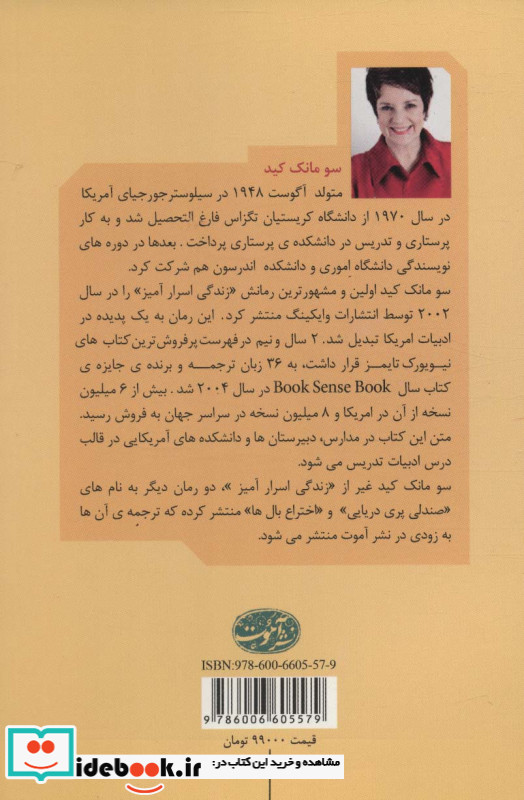 سو مانک کید
متولد آگوست ۱۹۴۸ در سیلوسترجورجیای آمریکا
در سال ۱۹۷۰ از دانشگاه کریستیان تگزاس فارغ التحصیل شد و به کار
پرستاری و تدریس در دانشکده ی پرستاری پرداخت . بعدها در دوره های
نویسندگی دانشگاه اموری و دانشکده اندرسون هم شرکت کرد.
سو مانک کید اولین و مشهورترین رمانش «زندگی اسرار آمیز» را در سال
۲۰۰۲ توسط انتشارات وایکینگ منتشر کرد. این رمان به یک پدیده در
ادبیات امریکا تبدیل شد. ۲ سال و نیم در فهرست پرفروش ترین کتاب های
نیویورک تایمز قرار داشت، به ۳۶ زبان ترجمه و برنده ی جایزه ی
کتاب سال Book Sense Book در سال ۲۰۰۴ شد . بیش از ۶ میلیون
نسخه از آن در امریکا و ۸ میلیون نسخه در سراسر جهان به فروش رسید.
متن این کتاب در مدارس، دبیرستان ها و دانشکده های آمریکایی در قالب
درس ادبیات تدریس می شود.
سو مانک کید غیر از «زندگی اسرار آمیز »، دو رمان دیگر به نام های
«صندلی پری دریایی» و «اختراع بال ها» منتشر کرده که ترجمه ی آن ها
به زودی در نشر آموت منتشر می شود.
نشر آموت
ISBN:978-600-6605-57-9
9 786006 605579
قیمت ۹۹۰۰۰ تومان
مشاهده و خرید این کتاب در:
idebook.ir